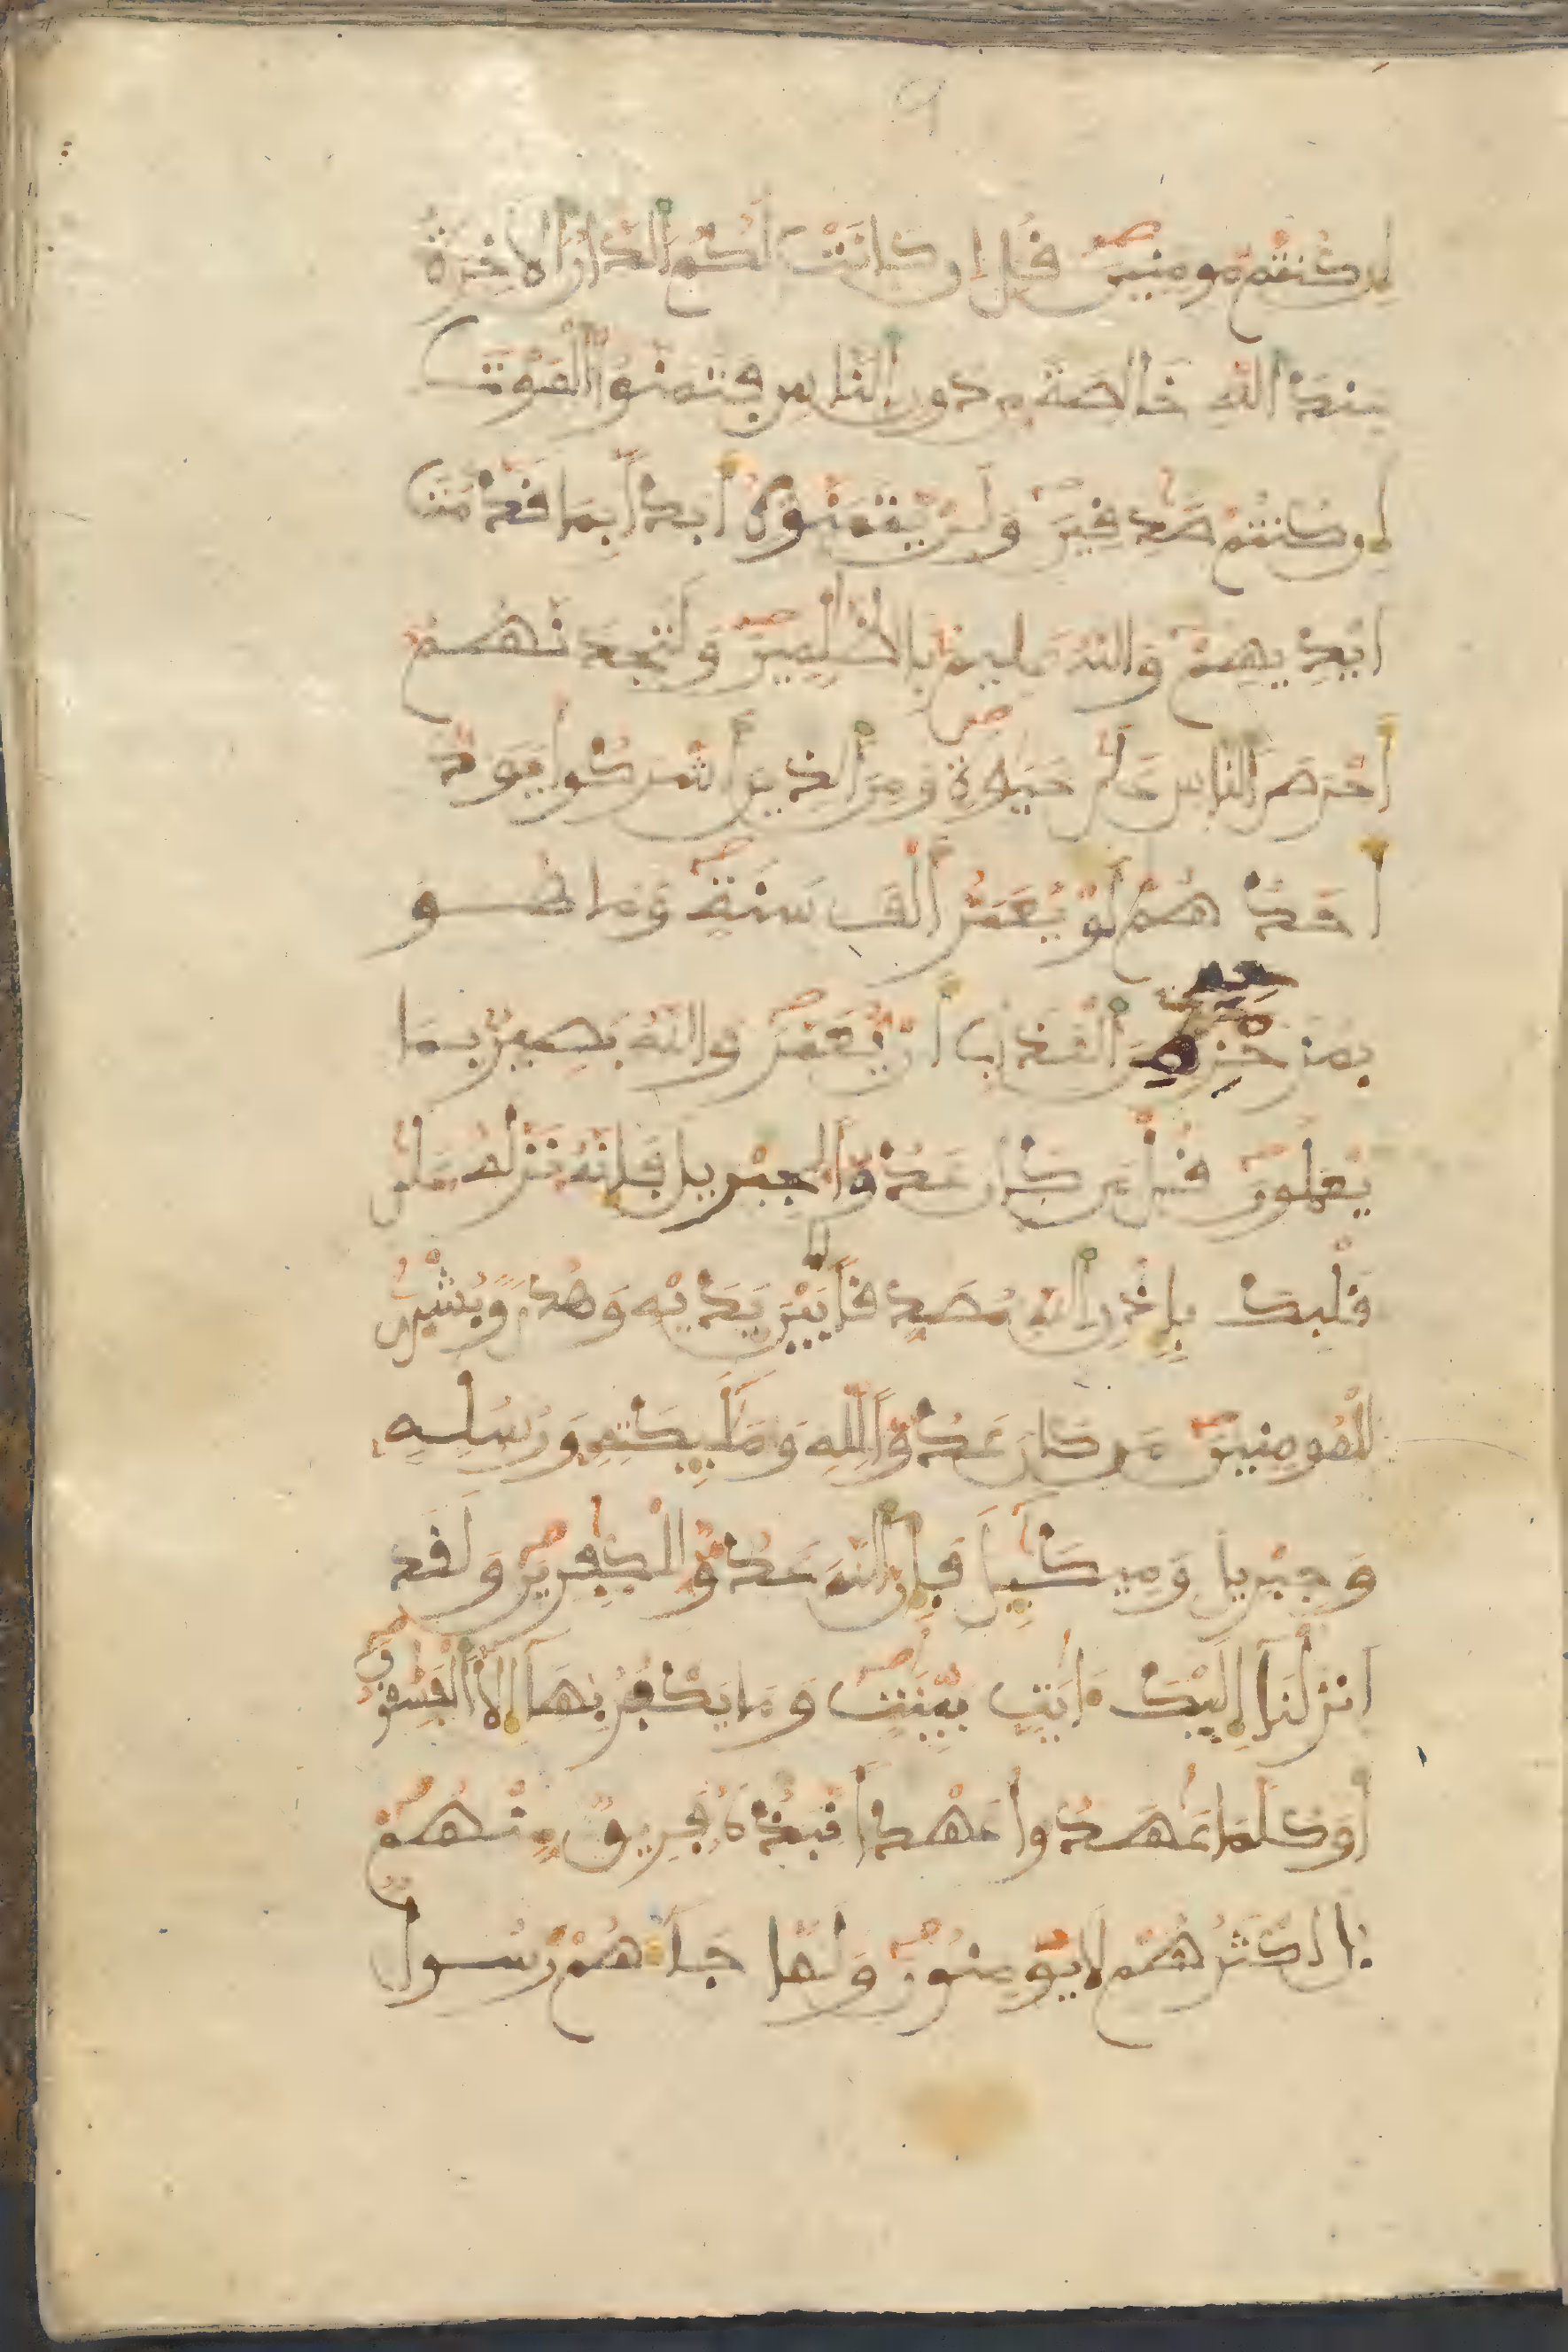 9
إن كنتم مومنين قل إن كانت لكم الدار الاخرة
عند الله خالصة من دون الناس فتمنوا الموت
إن كنتم صدقين ولن يتمنوه أبدا بما قدمت
ايديهم والله عليم بالظلمين ولتجدنهم
أحرص الناس على حيوة ومن الذين أشركوا يود
أحدهم لو يعمر ألف سنة وما هو
بمزحزحه من العذاب أن يعمر والله بصير بما
يعملون قل من كان عدوا لجبريل فإنه نزله على
قلبك بإذن الله مصدقا لما بين يديه وهدى وبشرى
للمومنين من كان عدوا لله ومليكته ورسله
وجبريل وميكيل فإن الله عدو للكفرين ولقد
انزلنا إليك ءايت بينت وما يكفر بها إلا الفسقون
أوكلما عهدوا عهدا نبذه فريق منهم
بل اكثرهم لا يومنون ولما جاهم رسول